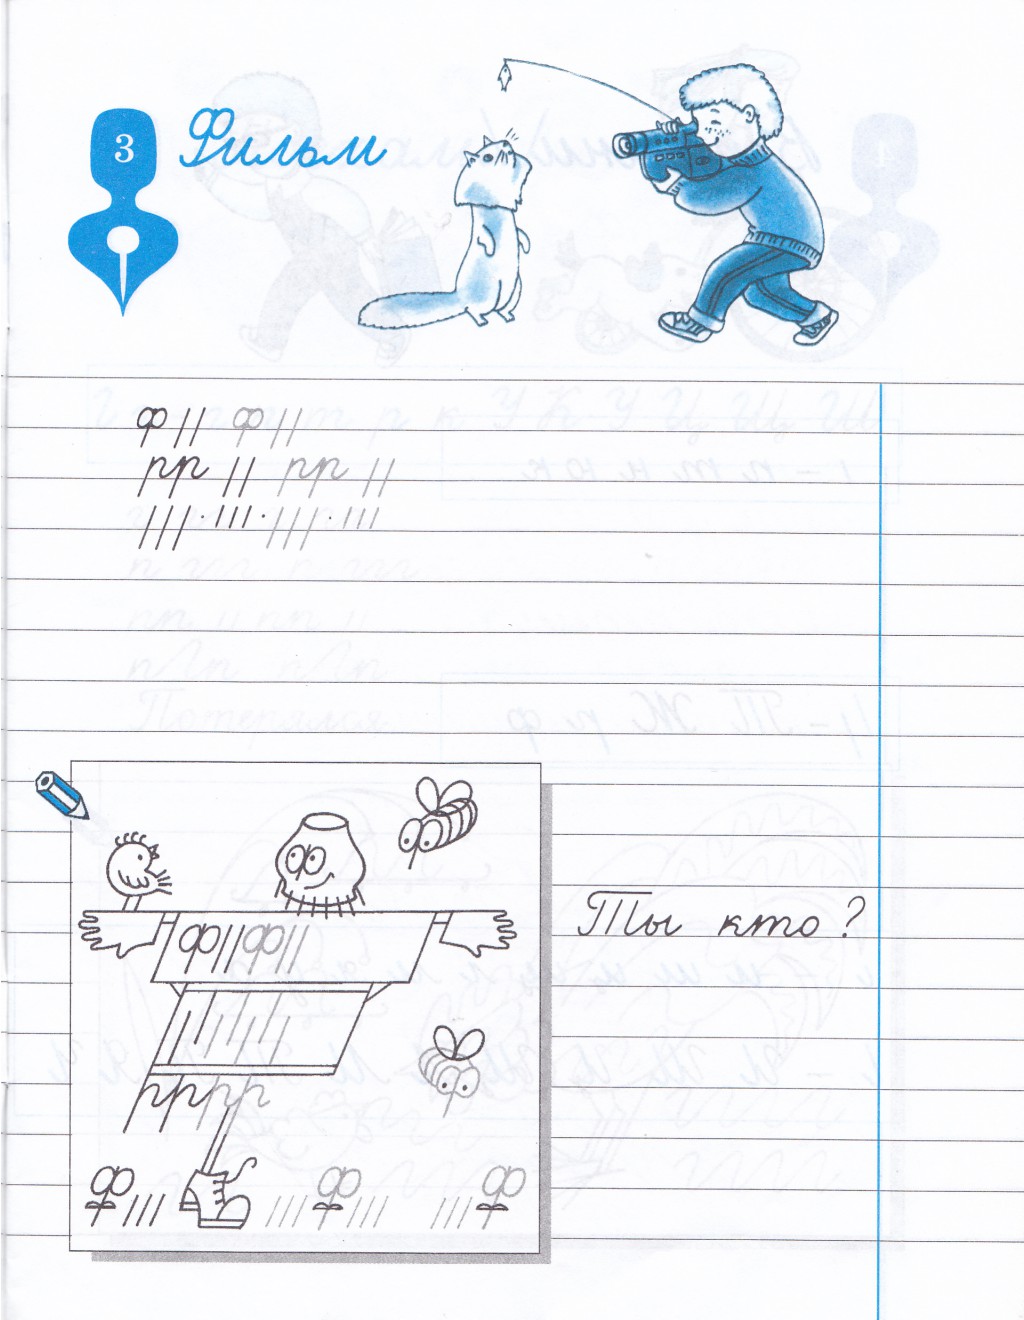 3 Фильм
ф || ф ||
рр || рр ||
|||·|||·|||·|||
ф||ф||
рррр
ф ||| ||| ф ||| ||| ф
Ты кто?